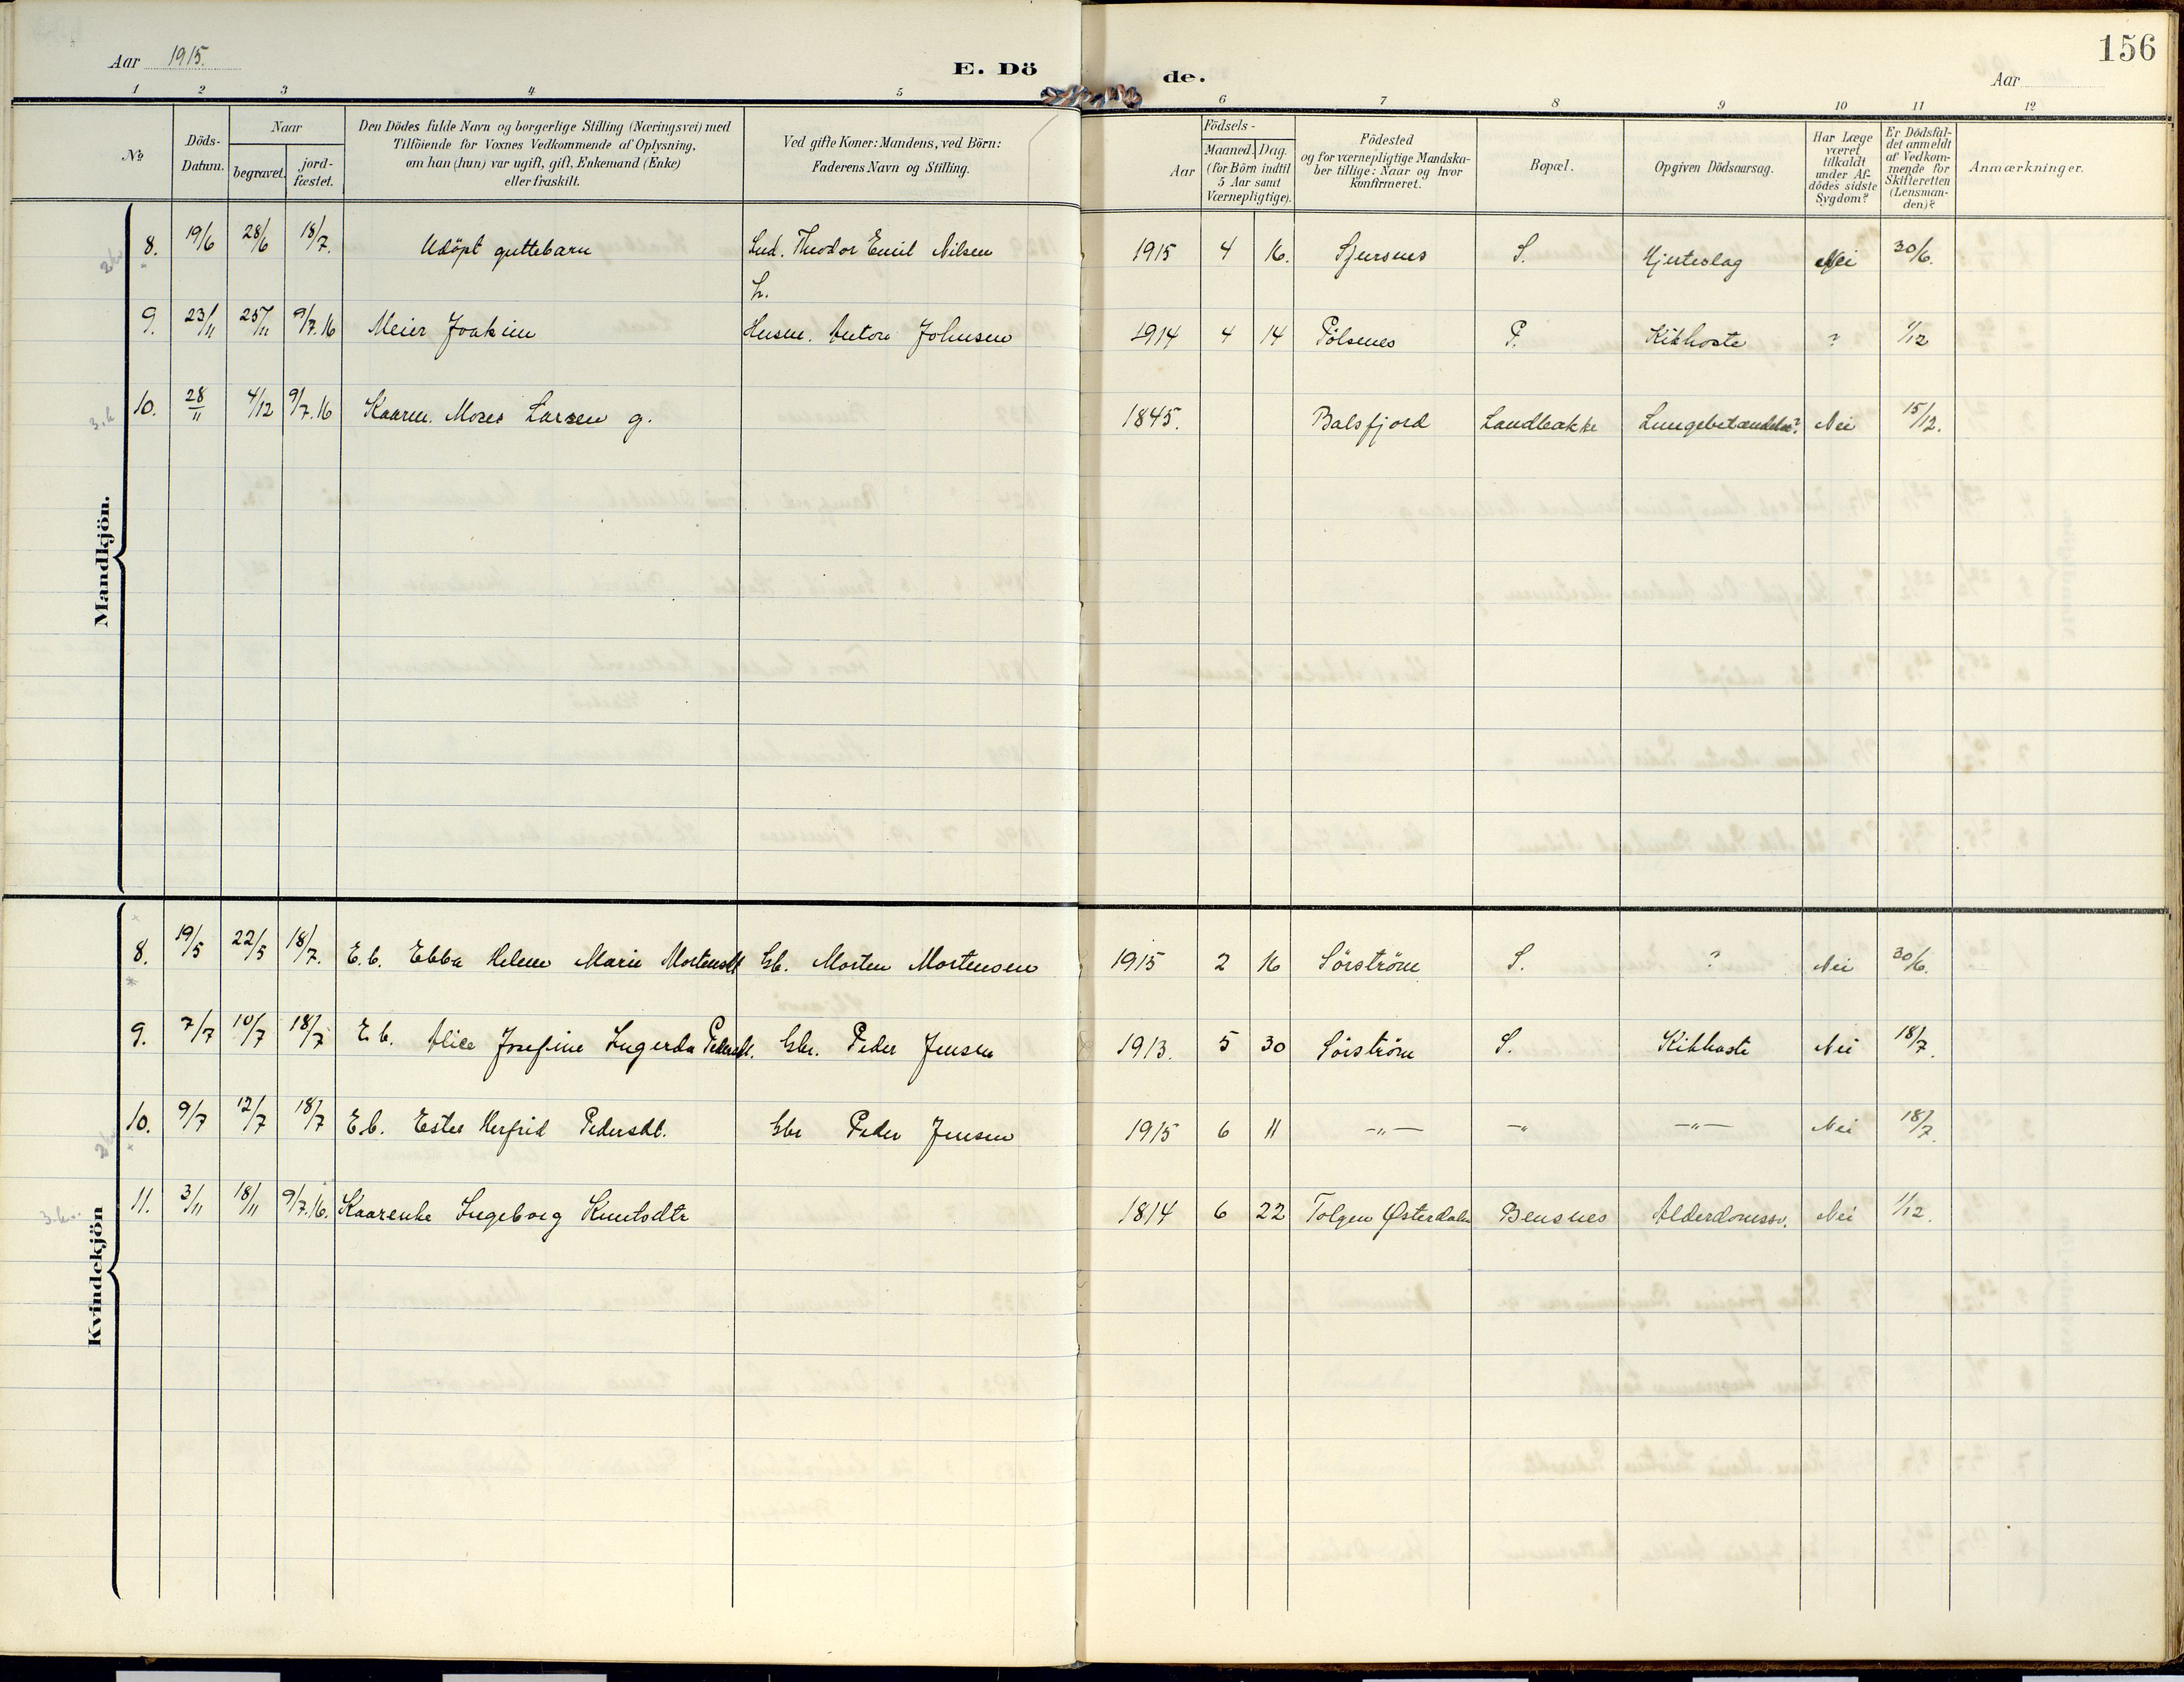 Aar 1915.
E. Döde.
Aar
156
1 2 3 4 5 6 7 8 9 10 11 12
No
Döds-Datum.
Naar
begravet.
jord-fæstet.
Den Dödes fulde Navn og borgerlige Stilling (Næringsvei) med
Tilföiende for Voxnes Vedkommende af Oplysning,
om han (hun) var ugift, gift, Enkemand (Enke)
eller fraskilt.
Ved gifte Koner: Mandens, ved Börn:
Faderens Navn og Stilling.
Aar
Födsels-
Maaned. Dag.
(for Börn indtil
5 Aar samt
Værnepligtige).
Födested
og for værnepligtige Mandska-
ber tillige: Naar og hvor
konfirmeret.
Bopæl.
Opgiven Dödsaarsag.
Har Læge
været
tilkaldt
under Af-
dödes sidste
Sygdom?
Er Dödsfal-
det anmeldt
af Vedkom-
mende for
Skifteretten
(Lensman-
den)?
Anmærkninger.
Mandkjön.
8. 19/6 28/6 18/7. Udöpt guttebarn Theodor Emil Nilsen 1915 4 16. Sjursnes S. Hjerteslag Nei 30/6.
9. 23/11 25/11 9/7.16 Meier Joakim Husm. Anton Johnsen 1914 4 14 Pölsenes P. Kikhoste ? 1/12
10. 28/11 4/12 9/7.16 Kaarm. Moses Larsen g. 1845. Balsfjord Laudbakke Lungebetændelse? Nei 15/12.
Kvindekjön
8. 19/5 22/5 18/7. E.b. Ebba Helene Marie Mortensdt Gb. Morten Mortensen 1915 2 16 Sörström S. ? Nei 30/6.
9. 7/7 10/7 18/7 E.b. Alice Josefine Ingerda Pedersdt. Gbr. Peder Jensen 1913. 5 30 Sörström S. Kikhoste Nei 18/7.
10. 9/7 12/7 18/7 E.b. Ester Herfrid Pedersdt. Gbr Peder Jensen 1915 6 11 —"— —" —"— Nei 18/7.
11. 3/11 18/11 9/7.16. Kaarenke Ingeborg Knutsdtr 1814 6 22 Tolgen Østerdalen Bensnes Alderdomssv. Nei 1/12.